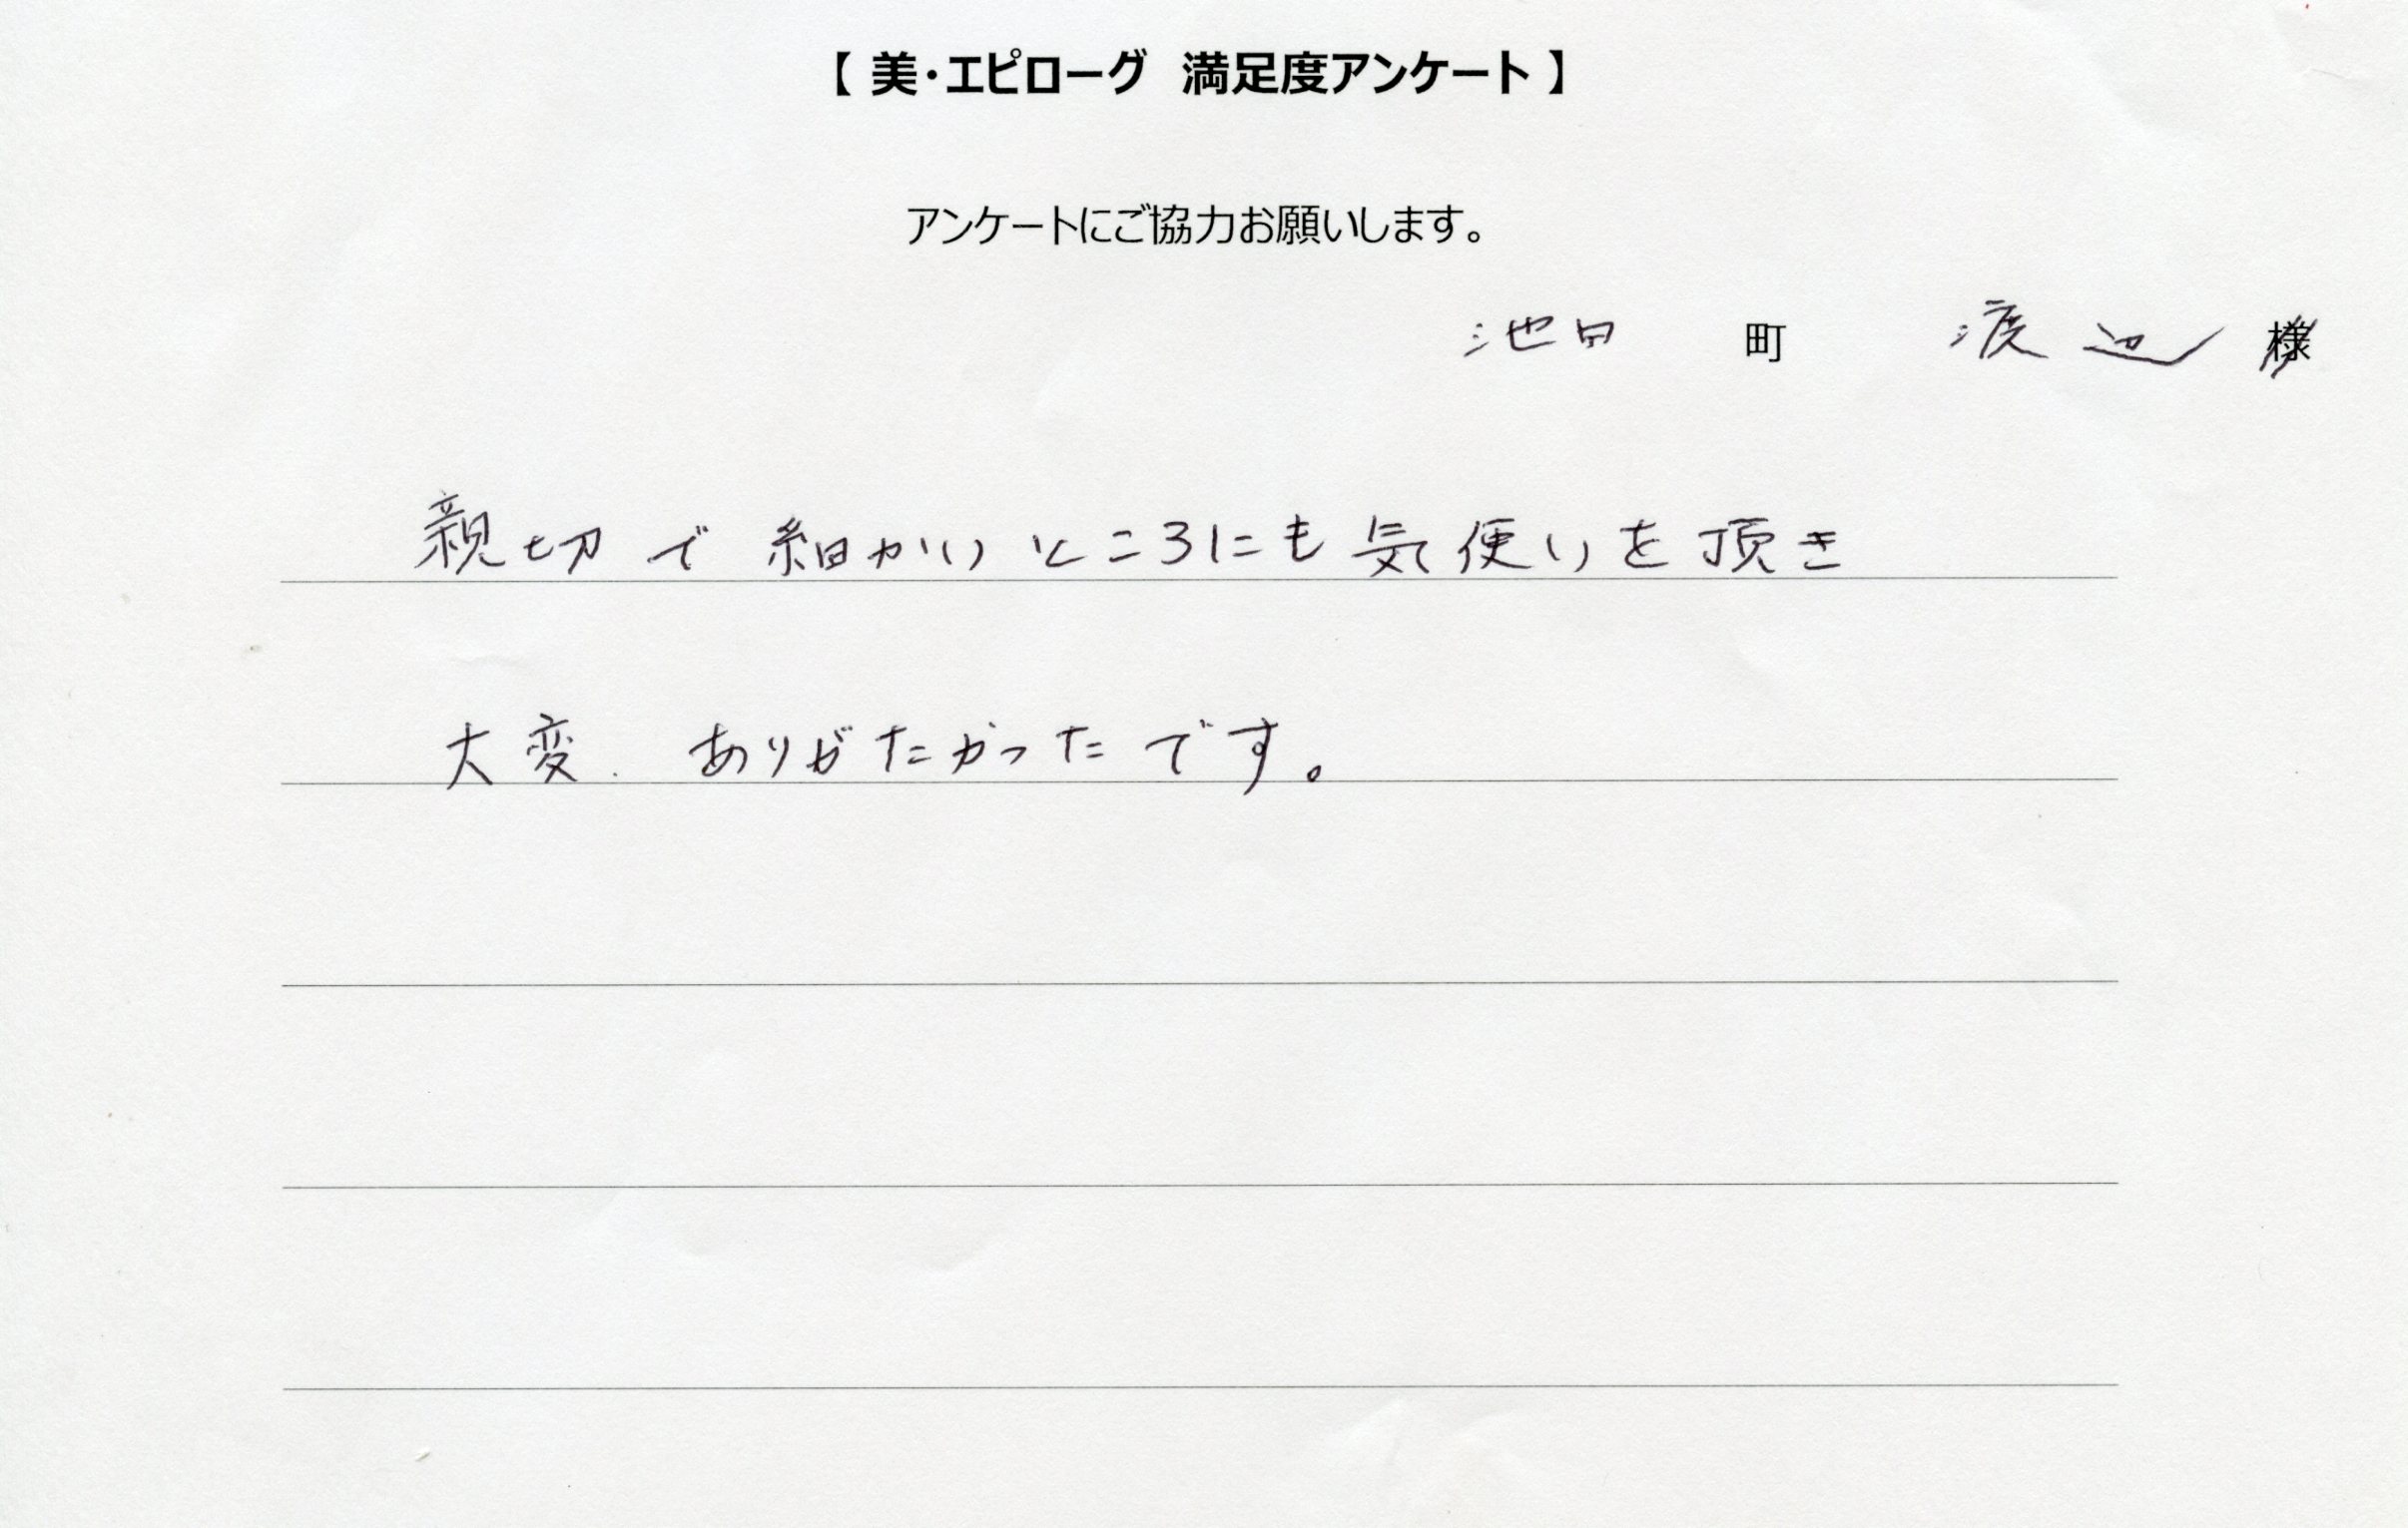 【 美・エピローグ 満足度アンケート 】
アンケートにご協力お願いします。
池田 町 渡辺 様
親切で細かいところにも気使いを頂き
大変、ありがたかったです。